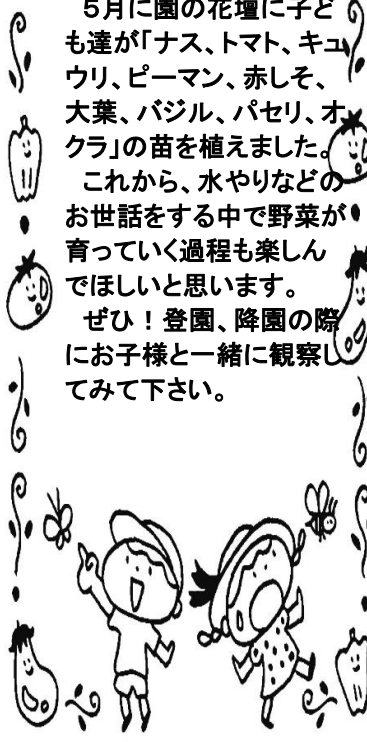 ５月に園の花壇に子ど
も達が「ナス、トマト、キュ
ウリ、ピーマン、赤しそ、
大葉、バジル、パセリ、オ
クラ」の苗を植えました。
これから、水やりなどの
お世話をする中で野菜が
育っていく過程も楽しん
でほしいと思います。
ぜひ！登園、降園の際
にお子様と一緒に観察し
てみて下さい。